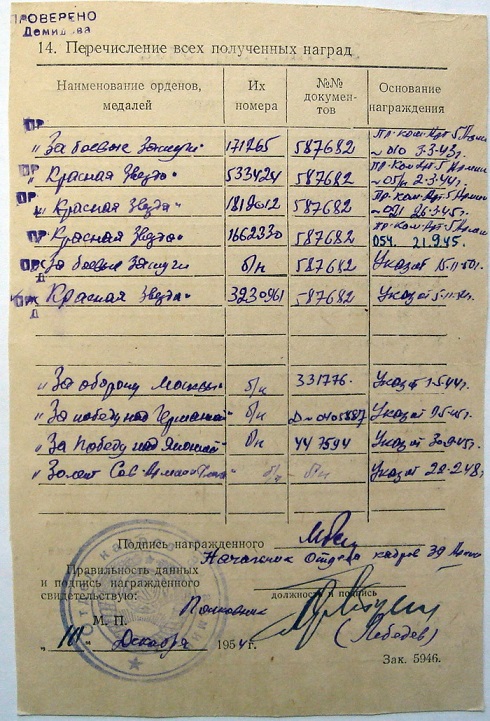 ПРОВЕРЕНО
14. Перечисление всех полученных наград
Наименование орденов, медалей Их номера №№ документов Основание награждения
„За боевые Заслуги“ 171265 587682 Пр-ком Арт-5 Армии
010 3-3-43г.
„Красная Звезда“ 533424 587682 Пр-Ком Арт-5 Армии
2-3-44г.
„Красная Звезда“ 587682 Пр-ком Арт-5 Армии
26-3-45г.
„Красная Звезда“ 1662330 587682 Пр-ком Арт-5 Армии
054. 21.9.45.
„За боевые Заслуги б/н 587682 Указ от 15-11-50г.
„Красная Звезда“ 3230961 587682 Указ от
„За оборону Москвы“ б/н 331776. Указ от 1-5-44г.
„За победу над Германией“ б/н Указ от 9-5-45г.
„За Победу над Японией“ б/н 447594 Указ от 30-9-45г.
„30 лет Сов. Армии и Флота“ б/н б/н Указ от 22-2-48г.
Подпись награжденного
Начальник Отдела кадров 39 Армии
Правильность данных
и подпись награжденного
свидетельствую:
должность и подпись
Полковник
М. П.
(Лебедев)
Декабря 1954г.
Зак. 5946.